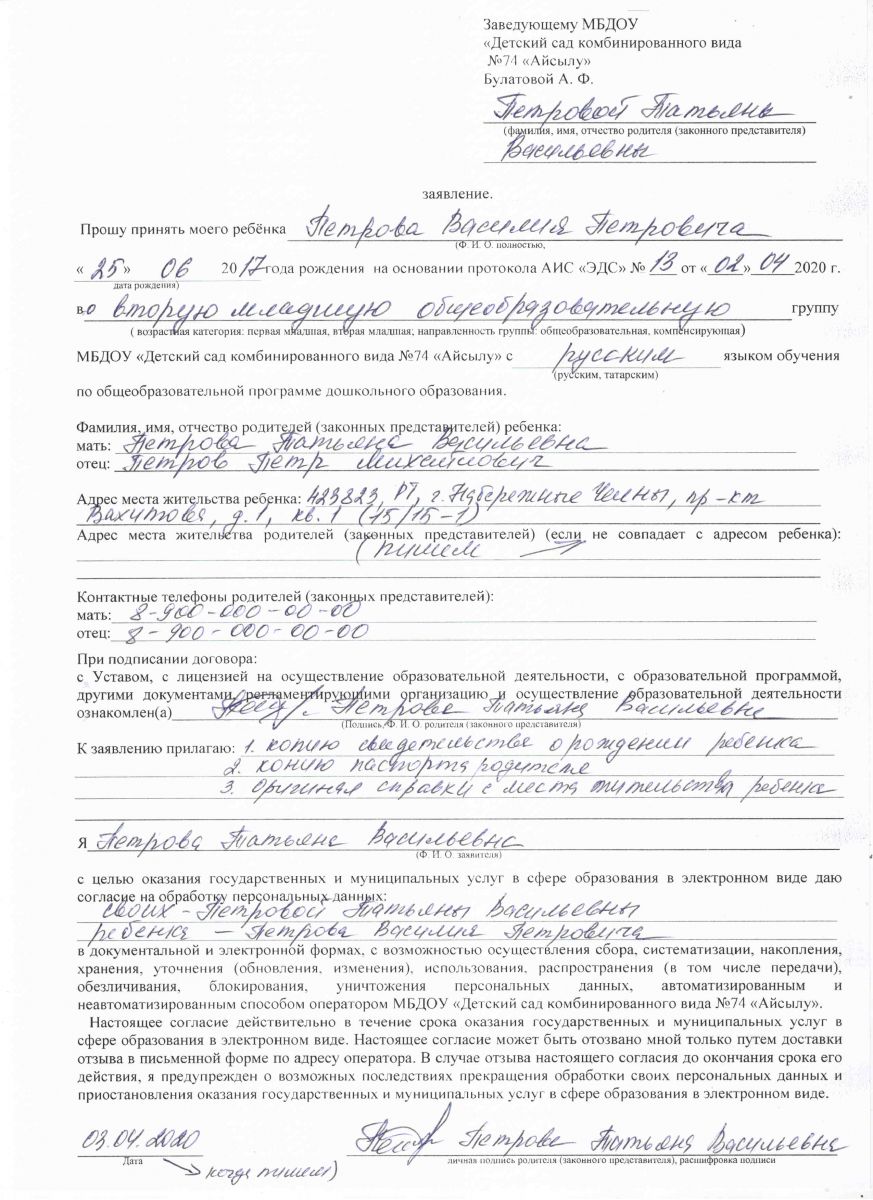 Заведующему МБДОУ
«Детский сад комбинированного вида
№74 «Айсылу»
Булатовой А. Ф.
Петровой Татьяны
(фамилия, имя, отчество родителя (законного представителя)
Васильевны
заявление.
Прошу принять моего ребёнка Петрова Василия Петровича
(Ф. И. О. полностью,
« 25 » 06 2017 года рождения на основании протокола АИС «ЭДС» № 13 от « 02 » 04 2020 г.
дата рождения)
во вторую младшую общеобразовательную группу
( возрастная категория: первая младшая, вторая младшая; направленность группы: общеобразовательная, компенсирующая)
МБДОУ «Детский сад комбинированного вида №74 «Айсылу» с русским языком обучения
(русским, татарским)
по общеобразовательной программе дошкольного образования.
Фамилия, имя, отчество родителей (законных представителей) ребенка:
мать: Петрова Татьяна Васильевна
отец: Петров Петр Михайлович
Адрес места жительства ребенка: 423823, РТ, г. Набережные Челны, пр-кт
Вахитова, д.1, кв.1 (15/15-1)
Адрес места жительства родителей (законных представителей) (если не совпадает с адресом ребенка):
(пишем
Контактные телефоны родителей (законных представителей):
мать: 8-900-000-00-00
отец: 8-900-000-00-00
При подписании договора:
с Уставом, с лицензией на осуществление образовательной деятельности, с образовательной программой,
другими документами, регламентирующими организацию и осуществление образовательной деятельности
ознакомлен(а) Петрова Татьяна Васильевна
(Подпись, Ф. И. О. родителя (законного представителя)
К заявлению прилагаю: 1. копию свидетельства о рождении ребенка
2. копию паспорта родителя
3. Оригинал справки с места жительства ребенка
Я Петрова Татьяна Васильевна
(Ф. И. О. заявителя)
с целью оказания государственных и муниципальных услуг в сфере образования в электронном виде даю
согласие на обработку персональных данных:
своих - Петровой Татьяны Васильевны
ребенка - Петрова Василия Петровича
в документальной и электронной формах, с возможностью осуществления сбора, систематизации, накопления,
хранения, уточнения (обновления, изменения), использования, распространения (в том числе передачи),
обезличивания, блокирования, уничтожения персональных данных, автоматизированным и
неавтоматизированным способом оператором МБДОУ «Детский сад комбинированного вида №74 «Айсылу».
Настоящее согласие действительно в течение срока оказания государственных и муниципальных услуг в
сфере образования в электронном виде. Настоящее согласие может быть отозвано мной только путем доставки
отзыва в письменной форме по адресу оператора. В случае отзыва настоящего согласия до окончания срока его
действия, я предупрежден о возможных последствиях прекращения обработки своих персональных данных и
приостановления оказания государственных и муниципальных услуг в сфере образования в электронном виде.
03.04.2020 Петрова Татьяна Васильевна
Дата личная подпись родителя (законного представителя), расшифровка подписи
когда пишем)